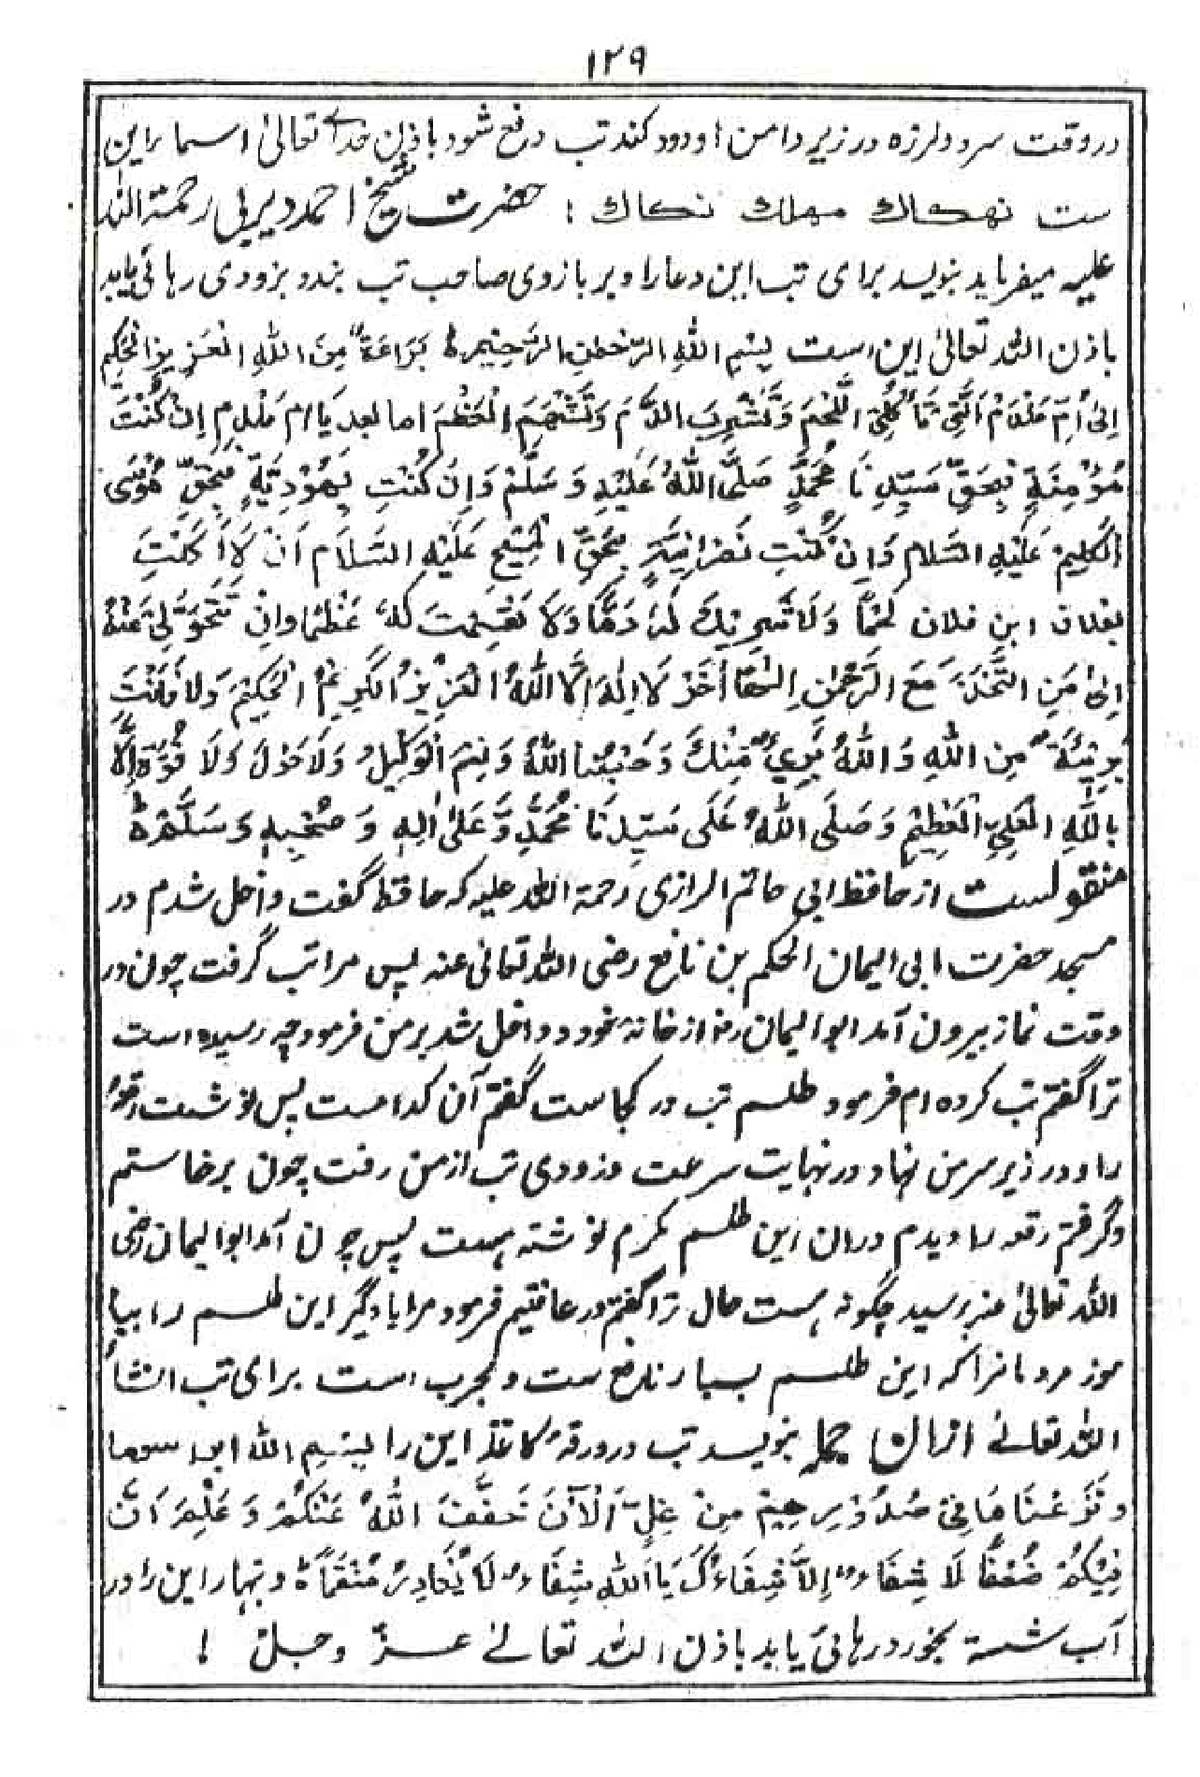 ۱۲۹
در وقت سرد و لرزه در زیر دامن او دود کند تب دفع شود باذن خدای تعالیٰ اسما را این
ست نهکاك مهلك نکاك : حضرت شیخ احمد دیربی رحمة الله
علیه میفرماید بنویسد برای تب این دعا را و بر بازوی صاحب تب بندد بزودی رهائی یابد
باذن الله تعالیٰ این است بِسْمِ اللهِ الرَّحْمٰنِ الرَّحِیْمِ ط بَرَاءَةٌ مِنَ اللهِ الْعَزِیْزِ الْحَکِیْمِ
اِلٰی اُمِّ مَلْدَمْ الَّتِیْ تَأْکُلُ اللَّحْمَ وَتَشْرِبَ الدَّمَ وَتَهْشِمَ الْعَظْمَ اما بعد یَا ام مَلْدَمِ اِنْ کُنْتَ
مُؤْمِنَةٍ فَبِحَقِّ سَیِّدِنَا مُحَمَّدٍ صَلَّی اللهُ عَلَیْهِ وَسَلَّمْ وَاِنْ کُنْتِ یَهُوْدِیَةٍ فَبِحَقِّ مُوْسَی
الْکَلِیْمْ عَلَیْهِ السَّلام وَاِنْ کُنْتِ نَصْرَانِیَةٍ بِحَقِّ الْمَسِیْحِ عَلَیْهِ السَّلَام اَنْ لَا اَکَلْتِ
لفلان ابن فلان لَحْمًا وَلَا شَرِبْتِ لَهُ دَمًّا وَلَا هَشِمْتِ لَهُ عَظْمًا وَاِنْ تَتَحَوَّلِیْ عَنْهُ
اِلیٰ مَنِ اتَّخَذَ مَعَ الرَّحْمٰنِ اِلٰهًا اٰخَرْ لَا اِلٰهَ اِلَّا اللهُ الْعَزِیْزُ الْکَرِیْمْ الْحَکِیْمْ وَلَا فَاَنْتَ
بَرِیْئَةٌ مِن اللهِ وَ اللهُ بَرِیْءٌ مِنْكَ وَ حَسْبُنَا اللهُ وَ نِعْمَ الْوَکِیْلُ وَلَا حَوْلَ وَلَا قُوَّةَ اِلَّا
بِاللهِ الْعَلِیِّ الْعَظِیْمِ وَصَلَی اللهُ عَلَی سَیِّدِنَا مُحَمَّدٍ وَّعَلٰی اٰلِهٖ وَ صَحْبِهٖ وَسَلَّمْ ط
منقولست از حافظ ابی حاتم الرازی رحمة الله علیه که حافظ گفت داخل شدم در
مسجد حضرت ابی الیمان الحکم بن نافع رضی الله تعالیٰ عنه پس مرا تب گرفت چون در
وقت نماز بیرون آمد ابو الیمان رض از خانه خود و داخل شد بر من فرمود چه رسیده است
ترا گفتم تب کرده ام فرمود طلسم تب در کجاست گفتم آن کدامست پس نوشت رقعه
را و در زیر سر من نهاد و در نهایت سرعت و زودی تب از من رفت چون برخاستم
و گرفتم رقعه را دیدم دران این طلسم مکرم نوشته هست پس چون آمد ابو الیمان رضی
الله تعالیٰ عنه پرسید چگونه هست حال ترا گفتم در عافتیم فرمود مرا یادگیر این طلسم را بیا
موز مردمانرا که این طلسم بسیار نافع ست و مجرب است برای تب انشأ
الله تعالیٰ بنویسد تب در ورقهٔ کاغذ این را بِسْمِ الله
وَ نَزَعْنَا مَا فِیْ صُدُوْرِهِمْ مِنْ غِلٍّ اَلْاٰنَ خَفَّفَ اللهُ عَنْکُمْ وَ عَلِمَ اَنَّ
فِیْکُمْ ضُعْفًا لَا شِفَاءٌ اِلَّا شِفَاءُكَ یَا اَللهُ شِفَاءً لَا یُغَادِرُ سُقَمًا ط و نهار این را در
آب شسته بخورد رهائی یابد باذن الله تعالیٰ عـزّ و جلّ !